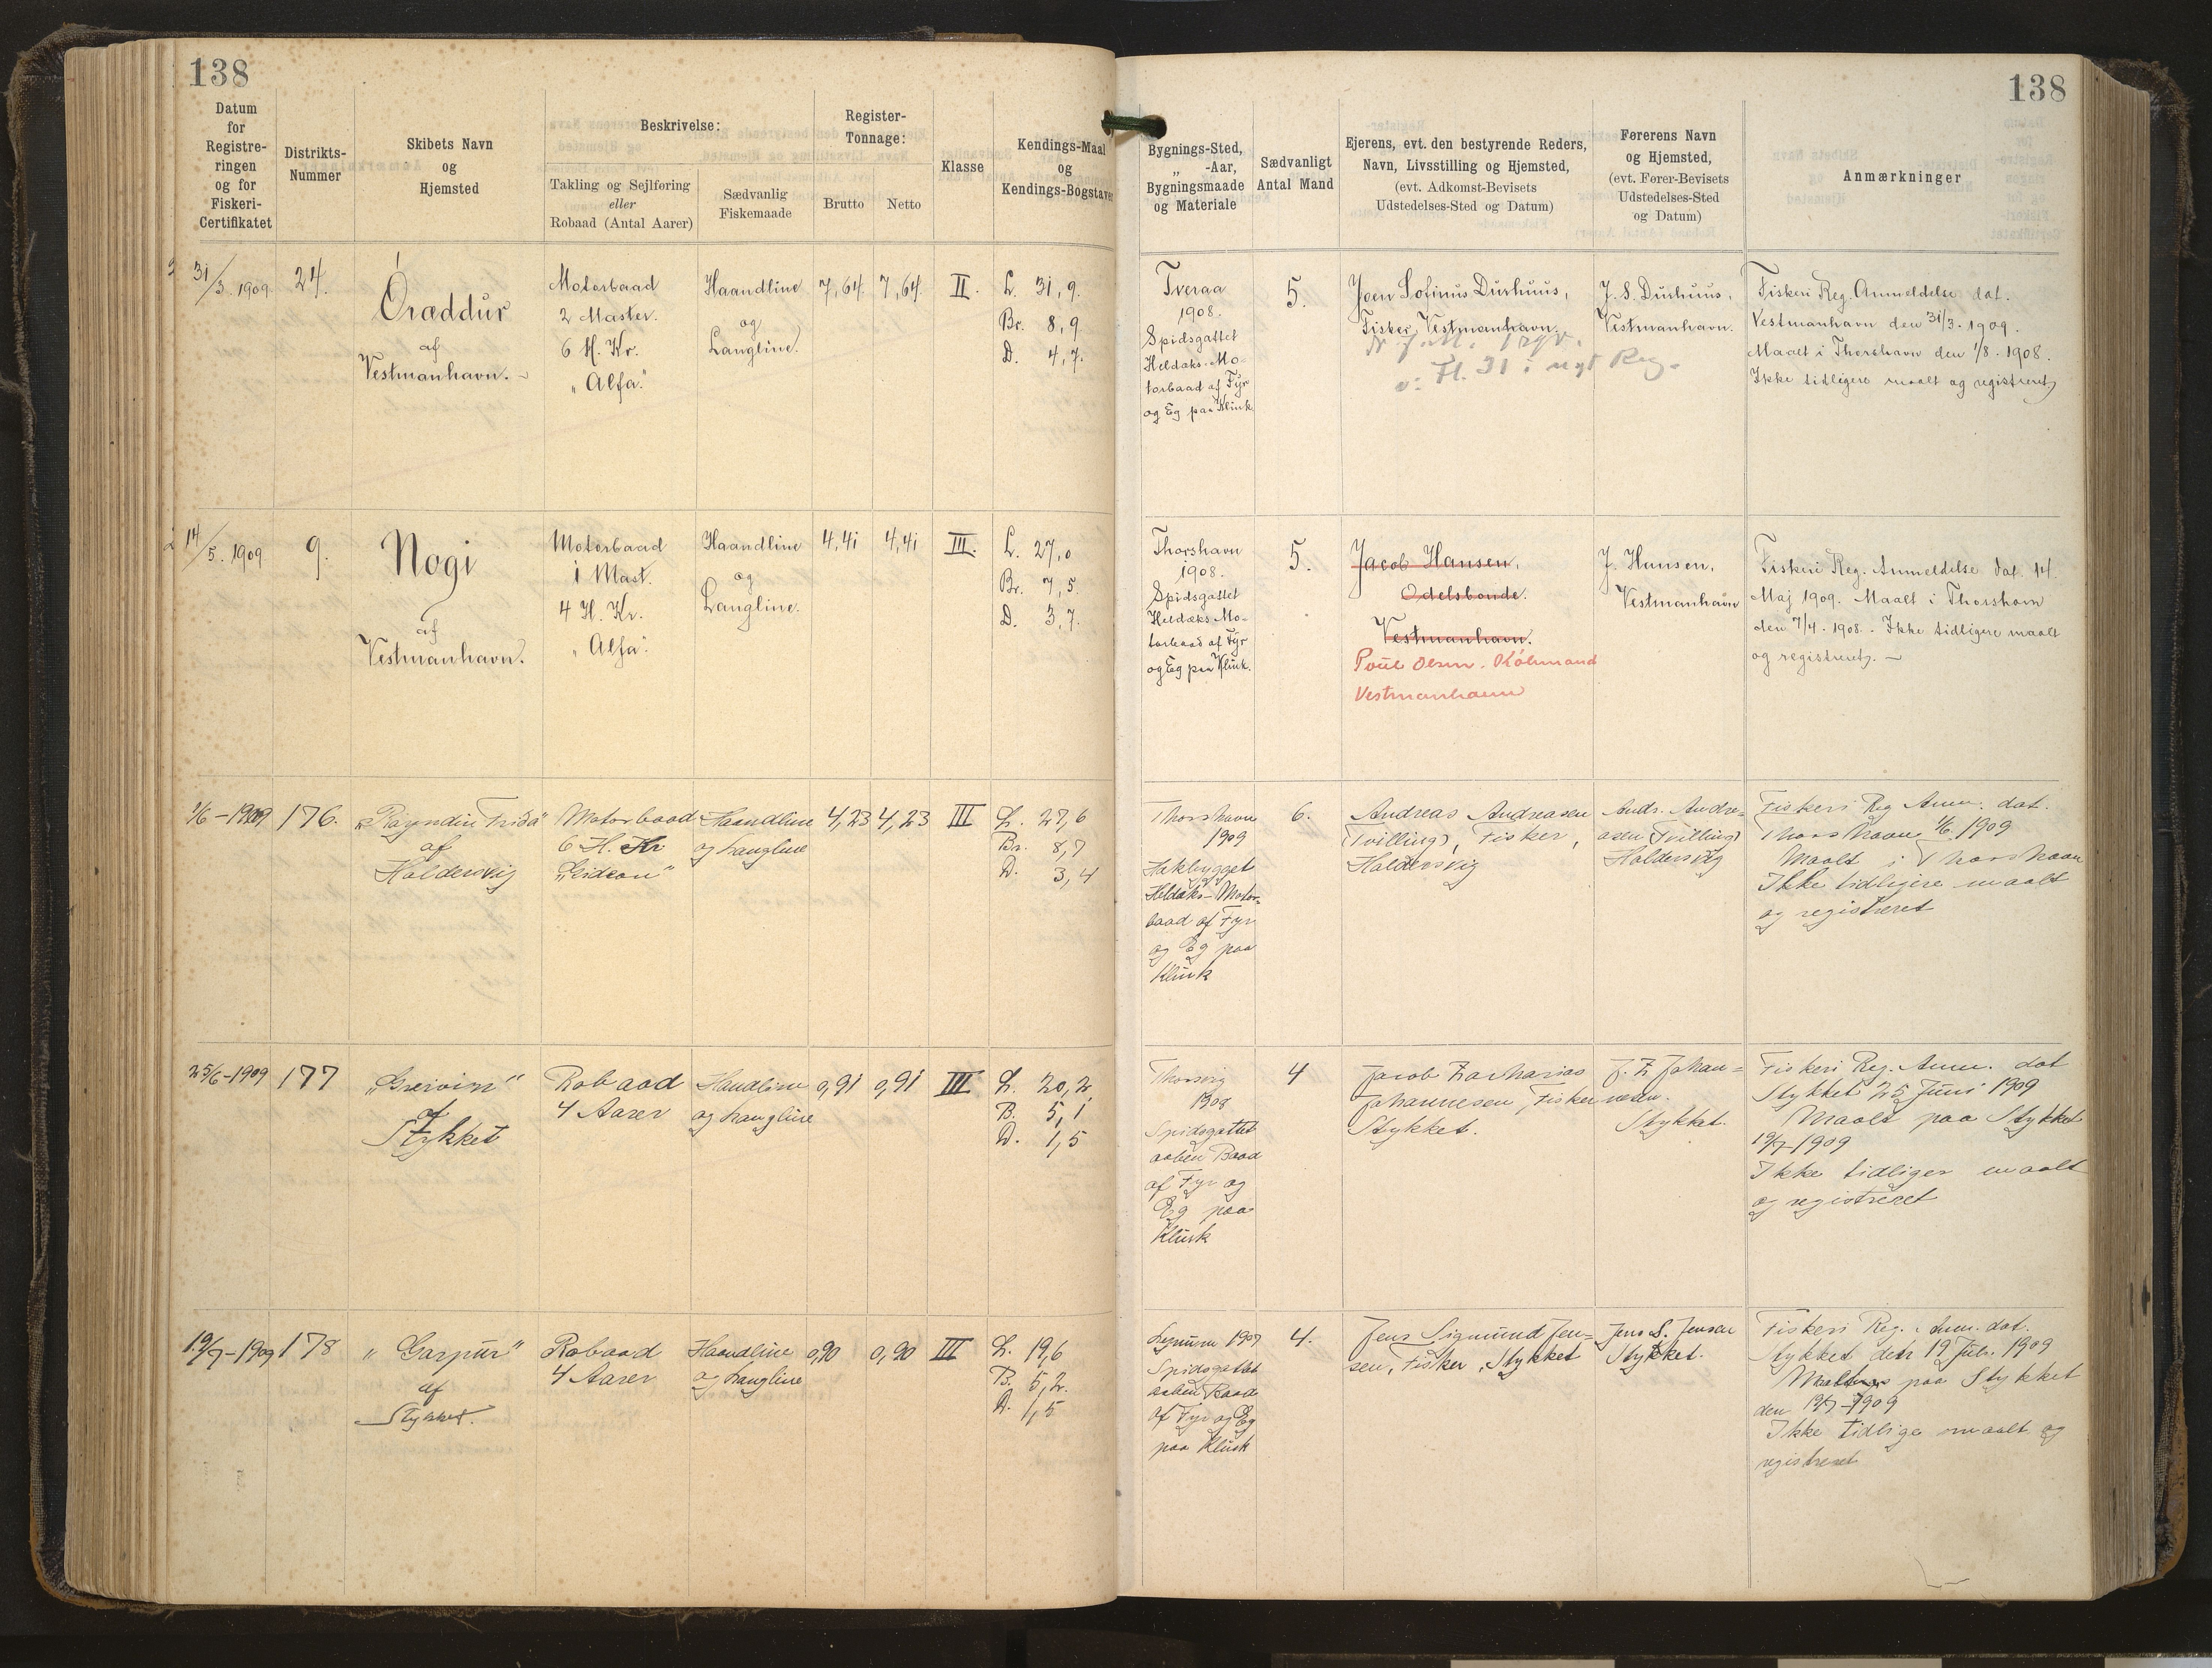 138
Datum
for
Registre-
ringen
og for
Fiskeri-
Certifikatet
Distrikts-
Nummer
Skibets Navn
og
Hjemsted
Beskrivelse:
Takling og Sejlføring
eller
Robaad (Antal Aarer)
Sædvanlig
Fiskemaade
Register-
Tonnage:
Brutto
Netto
Klasse
Kendings-Maal
og
Kendings-Bogstaver
31/3. 1909
24.
Óræddur
af
Vestmanhavn.
Motorbaad
2 Master.
6 H. Kr.
„Alfa."
Haandline
og
Langline.
7,64
7,64
II.
L. 31,9.
Br. 8,9
D. 4,7.
14/5. 1909
9.
Nogi
af
Vestmanhavn.
Motorbaad
1 Mast.
4 H. Kr.
„Alfa."
Haandline
og
Langline.
4,41
4,41
III.
L. 27,0
Br. 7,5.
D. 3,7.
1/6 - 1909
176.
af
Haldersvig
Motorbaad
6 H. Kr
„Gideon"
Haandline
og Langline
4,23
4,23
III
L. 27,6
Br. 8,7
D. 3,4
25/6-1909
177
af
Stykket
Robaad
4 Aarer
Haandline
og Langline
0,91
0,91
III
L. 20,2
B. 5,1
D. 1,5
19/7-1909
178
„Garpur"
af
Stykket.
Robaad
4 Aarer
Haandline
og Langline
0,90
0,90
III
L. 19,6
B. 5,2.
D. 1,5
138
Bygnings-Sted,
„ -Aar,
Bygningsmaade
og Materiale
Sædvanligt
Antal Mand
Ejerens, evt. den bestyrende Reders,
Navn, Livsstilling og Hjemsted,
(evt. Adkomst-Bevisets
Udstedelses-Sted og Datum)
Førerens Navn
og Hjemsted,
(evt. Fører-Bevisets
Udstedelses-Sted
og Datum)
Anmærkninger
Tveraa
1908.
Spidsgattet
Heldæks-Mo-
torbaad af Fyr
og Eg paa Klink
5.
Joen Sofinus Durhuus,
Fisker, Vestmanhavn.
Fl. 31 i nyt Reg.
J. S. Durhuus,
Vestmanhavn.
Fiskeri Reg. Anmeldelse dat.
Vestmanhavn den 31/3. 1909.
Maalt i Thorshavn den 1/8. 1908.
Ikke tidligere maalt og registreret
Thorshavn
1908.
Spidsgattet
Heldæks-Mo-
torbaad af Fyr
og Eg paa Klink.
5.
Jacob Hansen,
Odelsbonde.
Vestmanhavn.
Poul Olsen. Købmand
Vestmanhavn
J. Hansen,
Vestmanhavn
Fiskeri Reg. Anmeldelse dat. 14.
Maj 1909. Maalt i Thorshavn
den 7/4. 1908. Ikke tidligere maalt
og registreret.
Thorshavn
1909
Hakbygget
Heldæks-Motor-
baad af Fyr
og Eg paa
Klink
6.
Andreas Andreasen
(Tvilling), Fisker,
Haldersvig
Andr. Andre-
asen (Tvilling)
Haldersvig
Fiskeri Reg Anm. dat.
Thorshavn 1/6 1909
Maalt i Thorshavn
Ikke tidligere maalt
og registreret
Thorsvig
1908
Spidsgattet
aaben Baad
af Fyr og
Eg paa
Klink
4
Jacob Zacharias
Johannesen, Fisker
Stykket.
J. Z Johan-
nesen.
Stykket.
Fiskeri Reg. Anm. dat
Stykket 25 Juni 1909
Maalt paa Stykket
19/7-1909
Ikke tidliger maalt
og registreret
1907
Spidsgattet
aaben Baad
af Fyr og Eg
paa Klink
4.
Jens Sigmund Jen-
sen, Fisker, Stykket
Jens S. Jensen
Stykket.
Fiskeri Reg. Anm. dat.
Stykket den 19 Juli 1909
paa Stykket
den 19/7-1909
Ikke tidlige maalt og
registreret